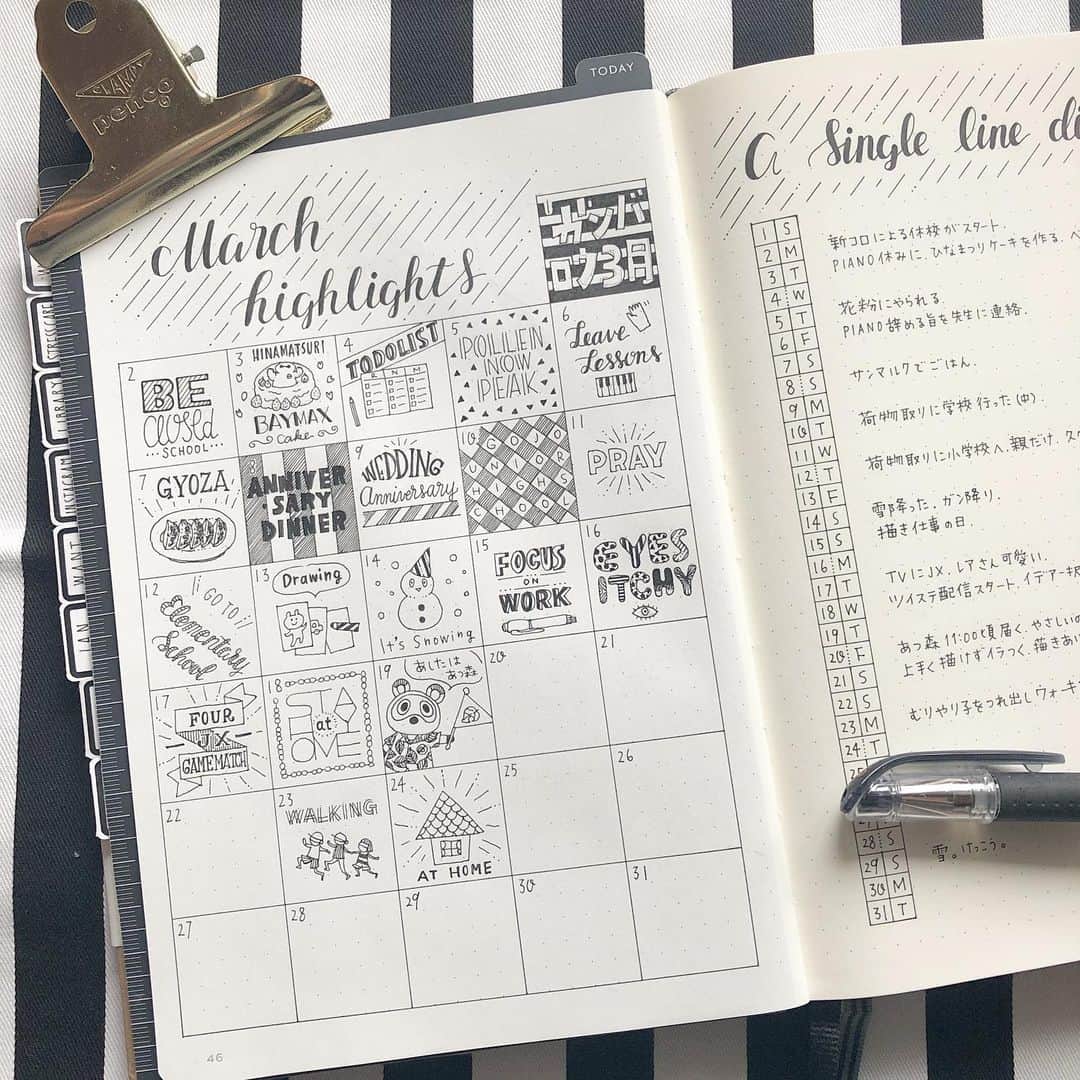 CLAMPY
penco
TODAY
STRESSCARE
LIBRARY
INSTAGRAM
WANT
JAN
March
highlights
ガンバ
ロウ3月
2
BE
closed
SCHOOL
3
HINAMATSURI
BAYMAX
cake
4
TODOLIST
R N M
5
POLLEN
NOW
PEAK
6
Leave
Lessons
7
GYOZA
8
ANNIVER
SARY
DINNER
9
WEDDING
Anniversary
10
GOJO
UNIOR
HIGHS
CHOOL
11
PRAY
12
GO TO
Elementary
School
13
Drawing
14
It's Snowing
15
FOCUS
ON
WORK
16
EYES
ITCHY
17
FOUR
JX
GAMEMATCH
18
STAY
at
HOME
19
あしたは
あつ森
20
21
22
23
WALKING
24
AT HOME
25
26
27
28
29
30
31
46
A Single line
1 S
2 M
3 T
4 W
5 T
6 F
7 S
8 S
9 M
10 T
11 W
12 T
13 F
14 S
15 S
16 M
17 T
18 W
19 T
20 F
21 S
22 S
23 M
24 T
28 S
29 S
30 M
31 T
新コロによる休校がスタート.
PIANO休みに.ひなまつりケーキを作る.
花粉にやられる
PIANO辞める旨を先生に連絡.
サンマルクでごはん.
荷物取りに学校行った(中).
荷物取りに小学校へ.親だけ.
雪降った.ガン降り.
描き仕事の日.
TVにJX.レアさん可愛い.
ツイステ配信スタート.
あつ森11:00頃届く.
上手く描けずイラつく.
むりやり子をつれ出し
雪。けっこう。